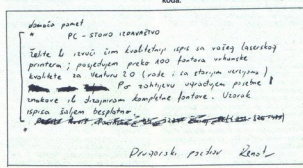 koda.
domaća pamet
* PC - STONO IZDAVAŠTVO
Želite li izvući čim kvalitetniji ispis sa vašeg laserskog
printera; posjedujem preko 100 fontova vrhunske
kvalitete za Venturu 2.0 (rade i sa starijim verzijama)
Po zahtjevu ugrađujem posebne
znakove ili dizajniram kompletne fontove. Uzorak
ispisa šaljem besplatno.
*
Drugarski pozdrav